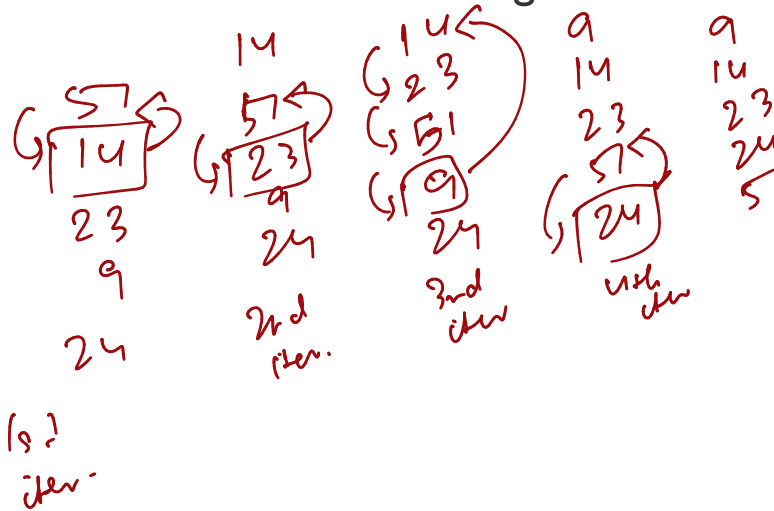 57
14
23
9
24
1st
iter.
14
57
23
9
24
2nd
iter.
14
23
51
9
24
3rd
iter
9
14
23
57
24
4th
iter
9
14
23
24
5